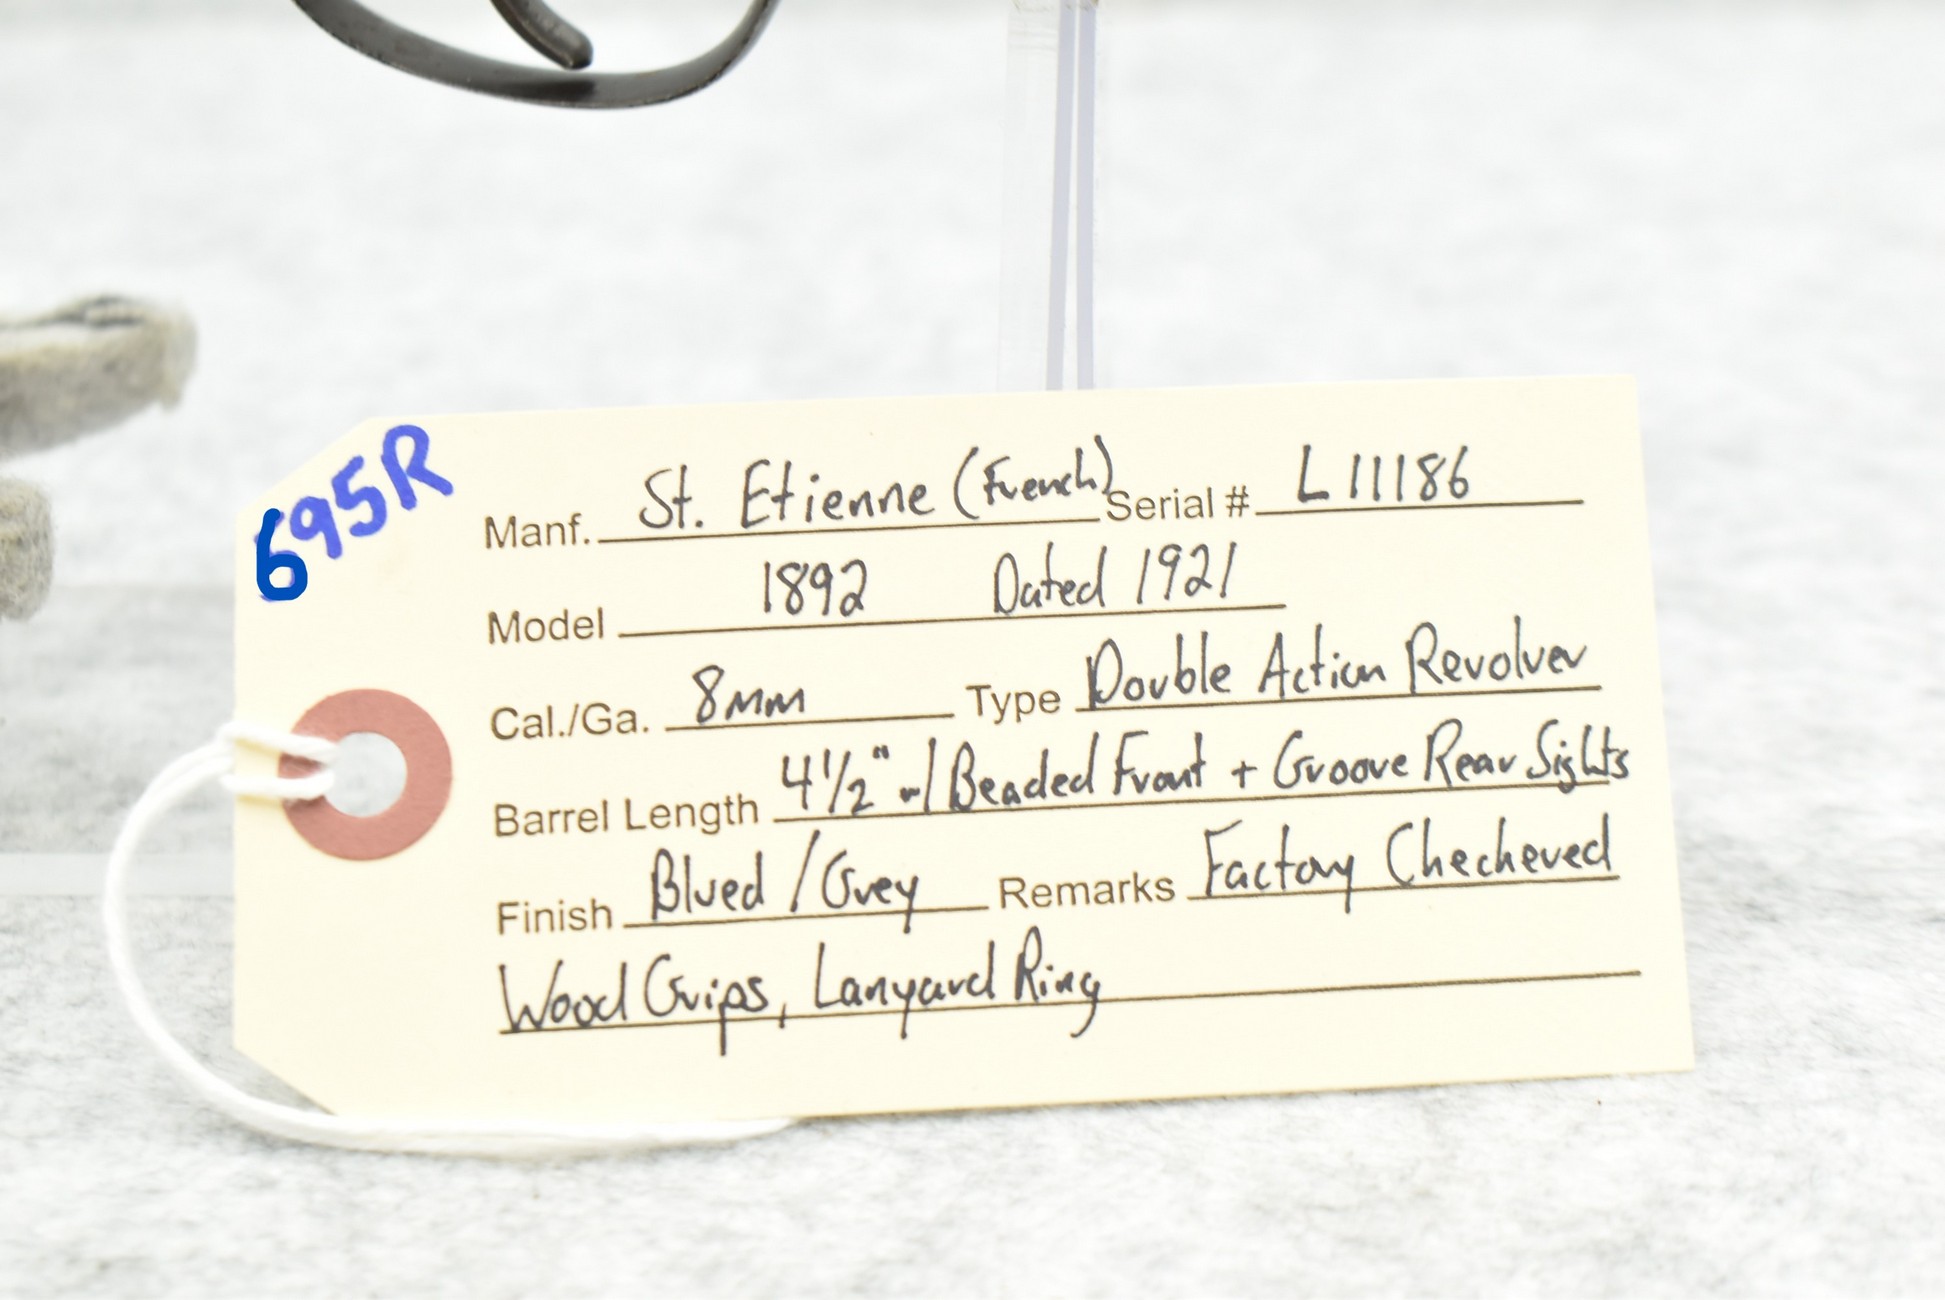 695R
Manf. St. Etienne (French) Serial # L11186
Model 1892 Dated 1921
Cal./Ga. 8mm Type Double Action Revolver
Barrel Length 4 1/2" w/ Beaded Front + Groove Rear Sights
Finish Blued / Grey Remarks Factory Checkered
Wood Grips, Lanyard Ring